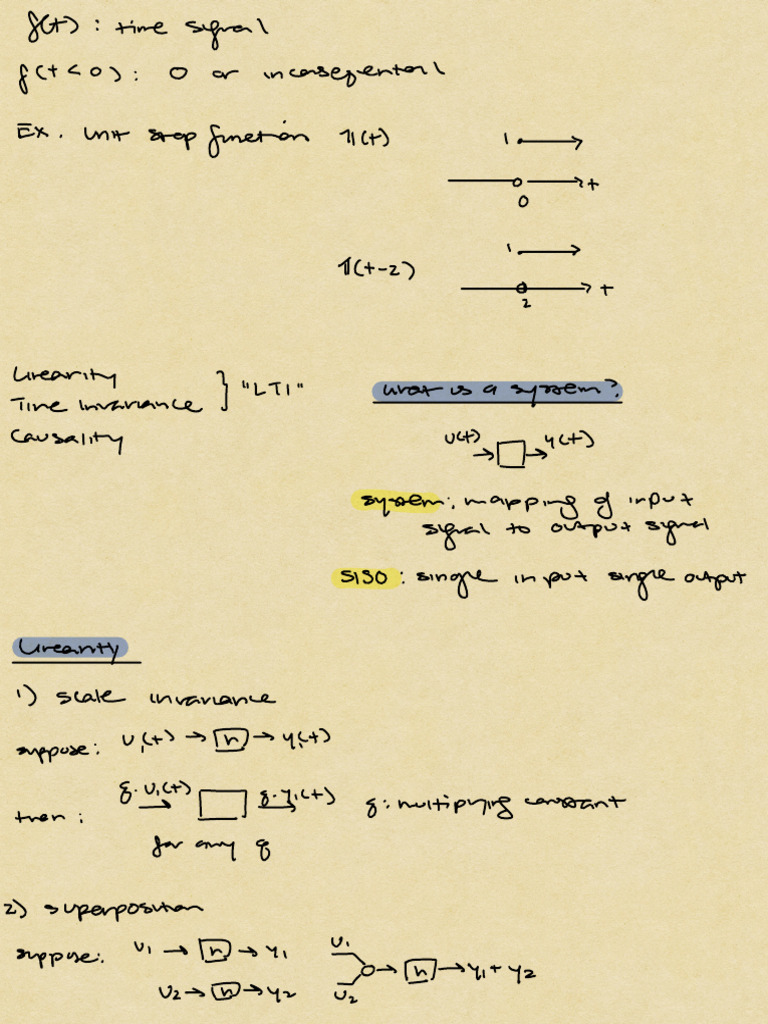 f(t) : time signal
f(t<0) : 0 or incaseqentall
Ex. unit step function 𝟙(t)
1
t
0
𝟙(t-2)
1
t
2
Linearity
Time Invariance } "LTI"
Causality
what is a system?
u(t) → □ → y(t)
system: mapping of input
signal to output signal
SISO : single input single output
Linearity
1) scale invariance
suppose: u₁(t) → h → y₁(t)
then : g·u₁(t) → □ g·y₁(t) → g: multiplying constant
for any g
2) superposition
suppose: u₁ → h → y₁
u₂ → h → y₂
u₁
u₂
→ h → y₁ + y₂